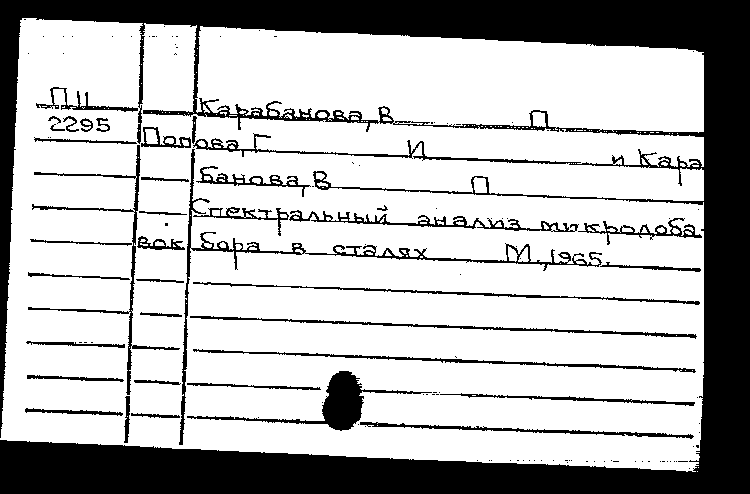 П11 Карабанова, В П
2295
Попова, Г И и Кара
банова, В П
Спектральный анализ микродоба-
вок бора в сталях М., 1965.